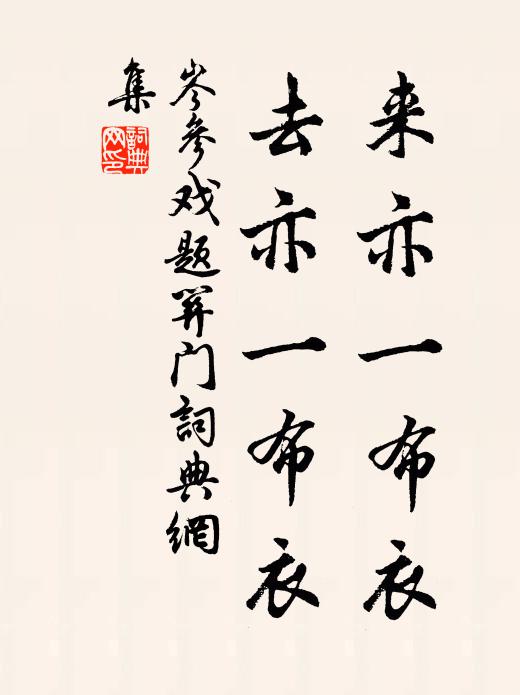 来亦一布衣
去亦一布衣
岑參戏題関门詞典網
集
詞典网印